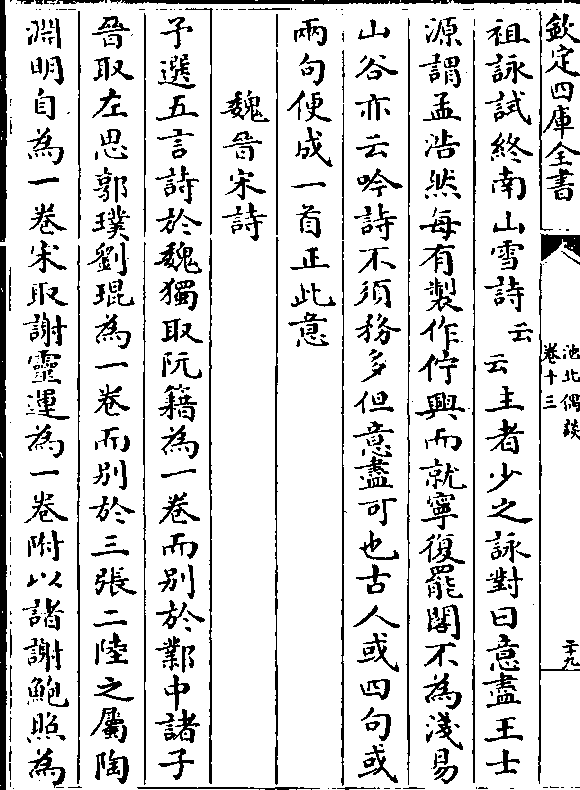 欽定四庫全書
池北偶談
卷十三
二十九
祖詠試終南山雪詩云云主者少之詠對曰意盡王士
源謂孟浩然每有製作佇興而就寧復罷閣不為淺易
山谷亦云吟詩不須務多但意盡可也古人或四句或
兩句便成一首正此意
魏晉宋詩
予選五言詩於魏獨取阮籍為一卷而别於鄴中諸子
晉取左思郭璞劉琨為一卷而别於三張二陸之屬陶
淵明自為一卷宋取謝靈運為一卷附以諸謝鮑照為